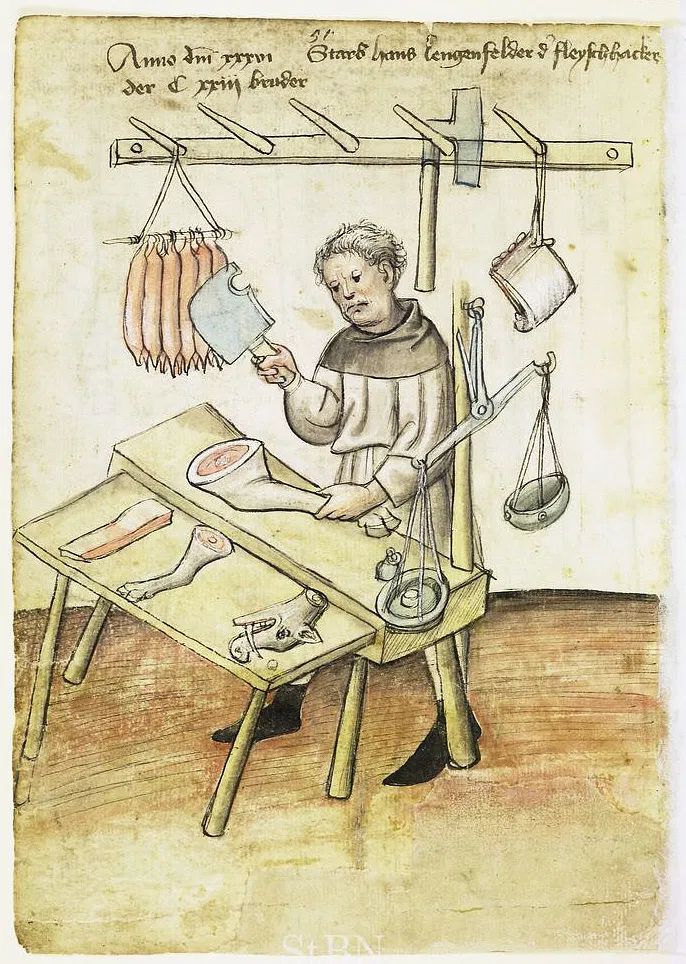 31
Anno dm̄ xxxvi Starb hans lengenfelder d' fleyschhacker
der C xxiii bruder
StBN